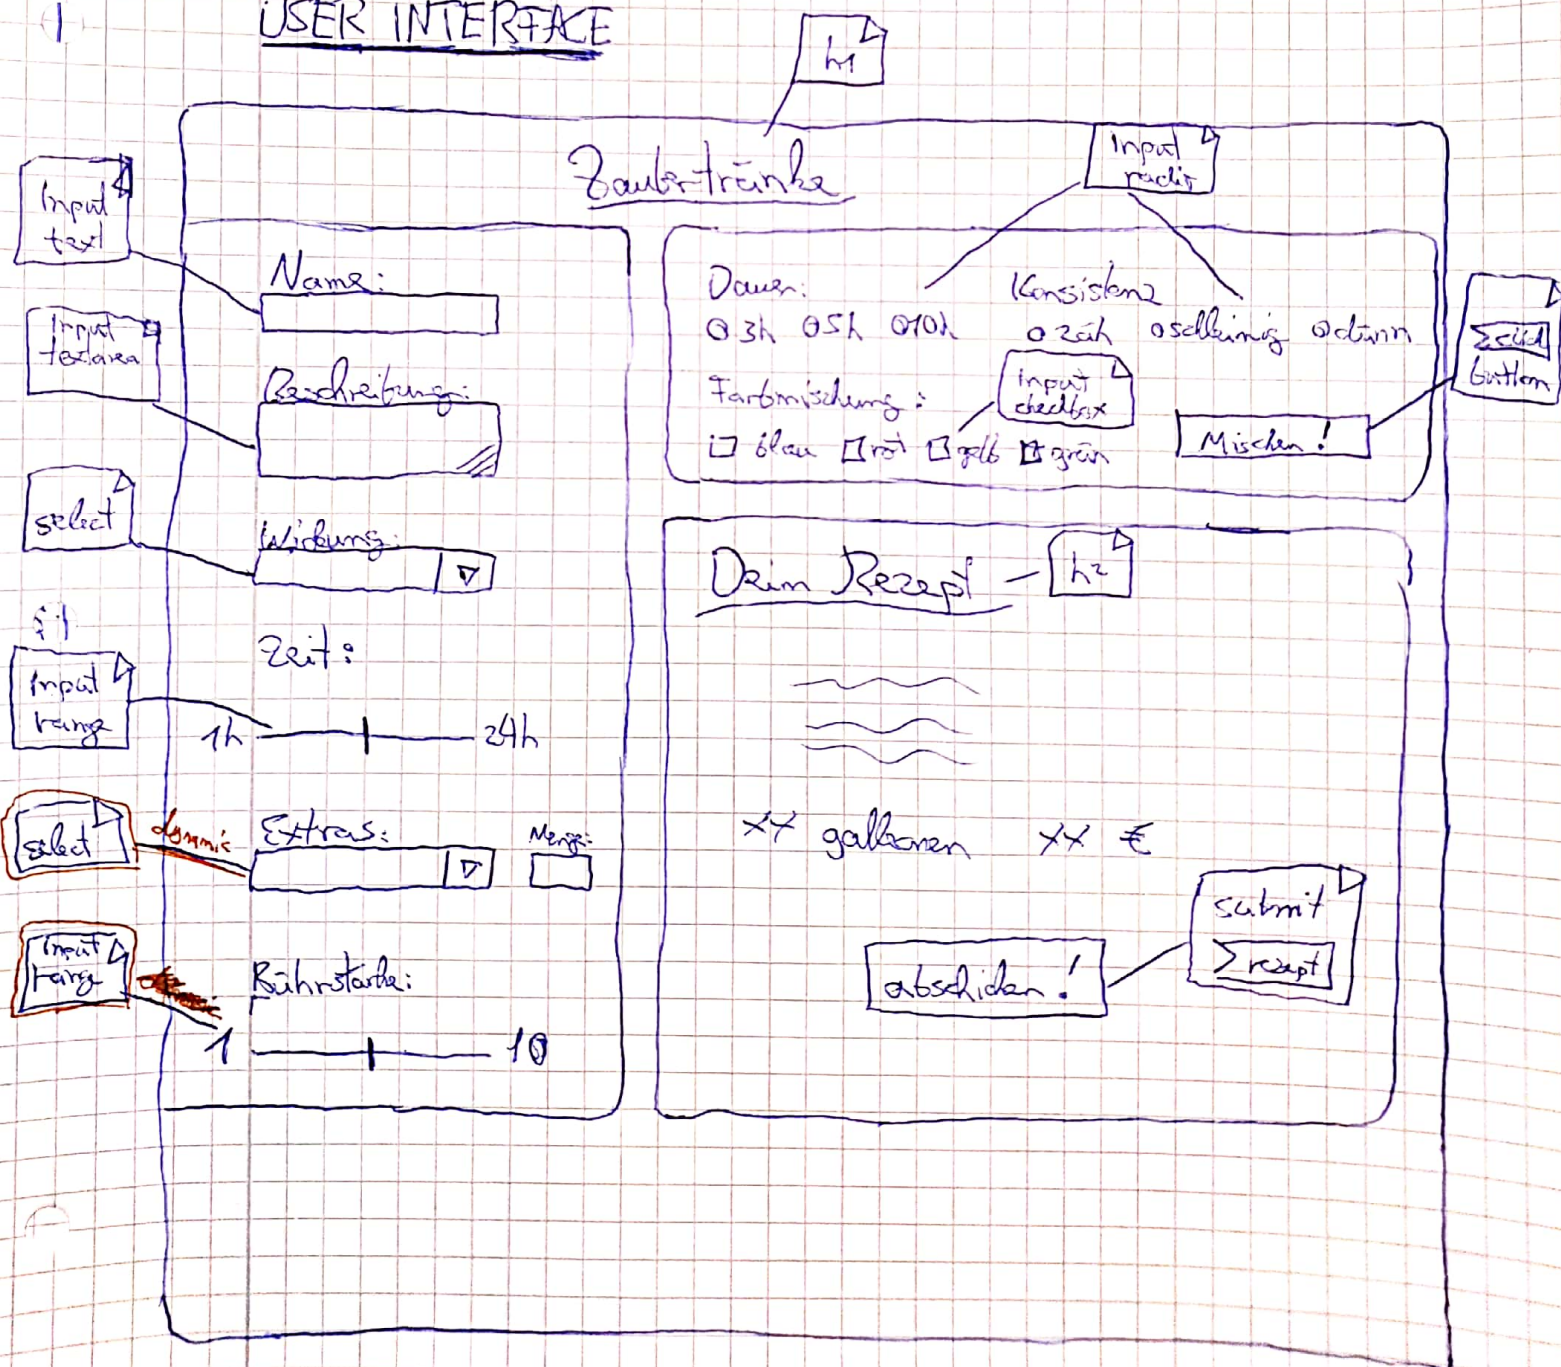 USER INTERFACE
h1
Zaubertränke
Input
text
Input
textarea
select
Input
range
select
dynamic
Input
range
Name:
Beschreibung:
Wirkung:
Zeit:
1h
24h
Extras:
Menge:
Rührstärke:
1
10
Input
radio
Dauer:
3h 5h 10h
Konsistenz
zäh schleimig dünn
Farbmischung:
Input
checkbox
blau rot gelb grün
Mischen!
button
Dein Rezept
h2
xx gallonen xx €
abschicken!
submit
rezept